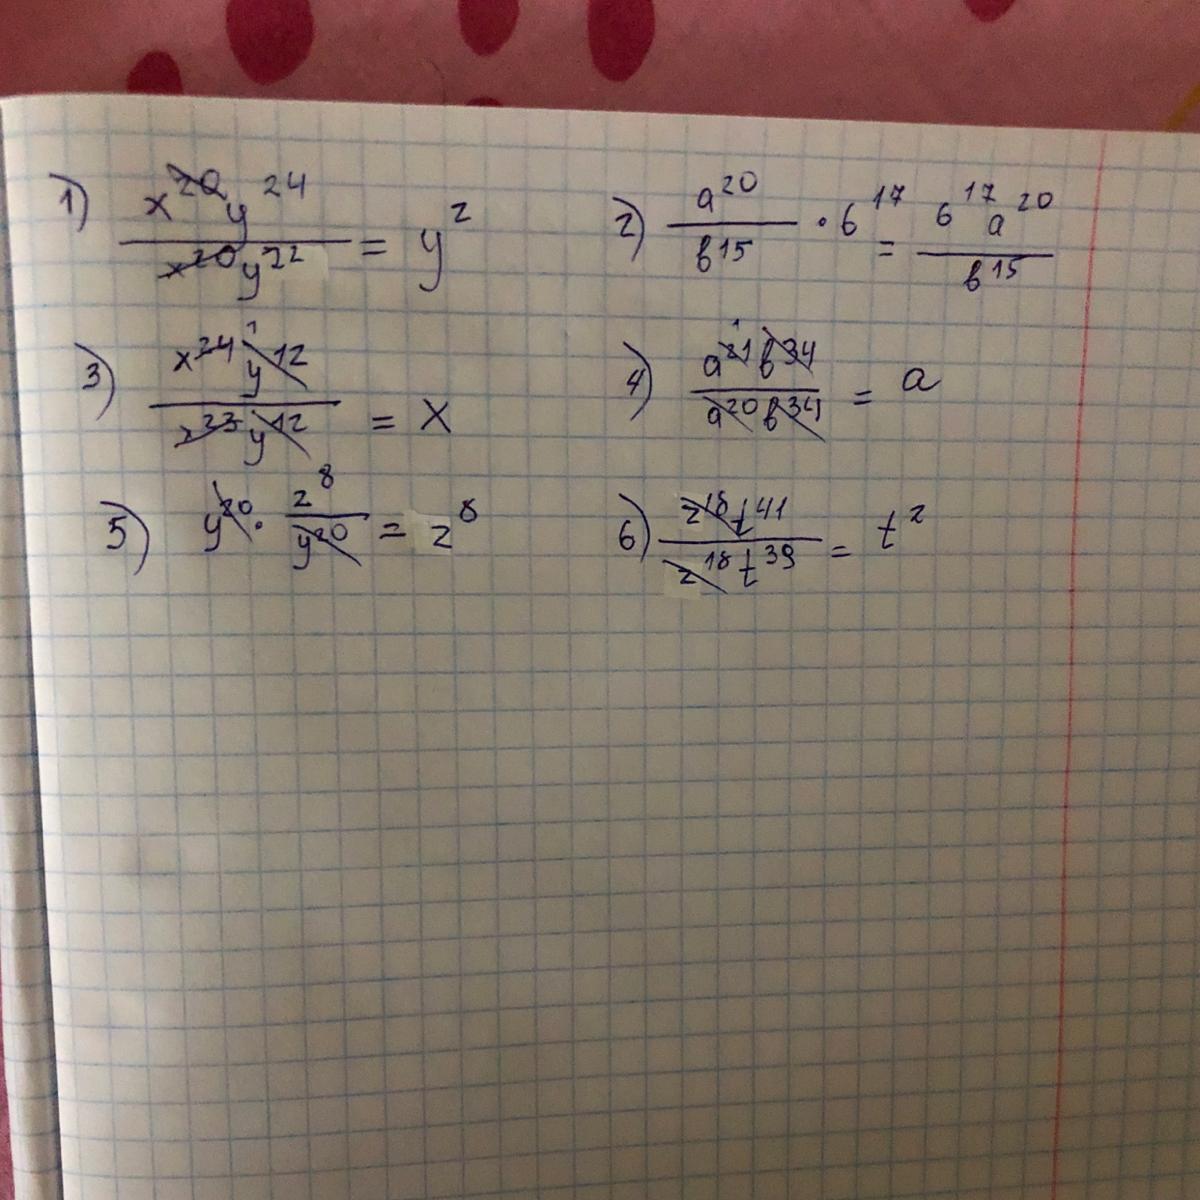 1) x²⁰y²⁴ / x²⁰y²² = y²
2) a²⁰ / b¹⁵ · 6¹⁷ = 6¹⁷a²⁰ / b¹⁵
3) x²⁴y¹² / x²³y¹² = x
4) a²¹b³⁴ / a²⁰b³⁴ = a
5) y²⁰ · z⁸ / y²⁰ = z⁸
6) z¹⁸t⁴¹ / z¹⁸t³⁹ = t²